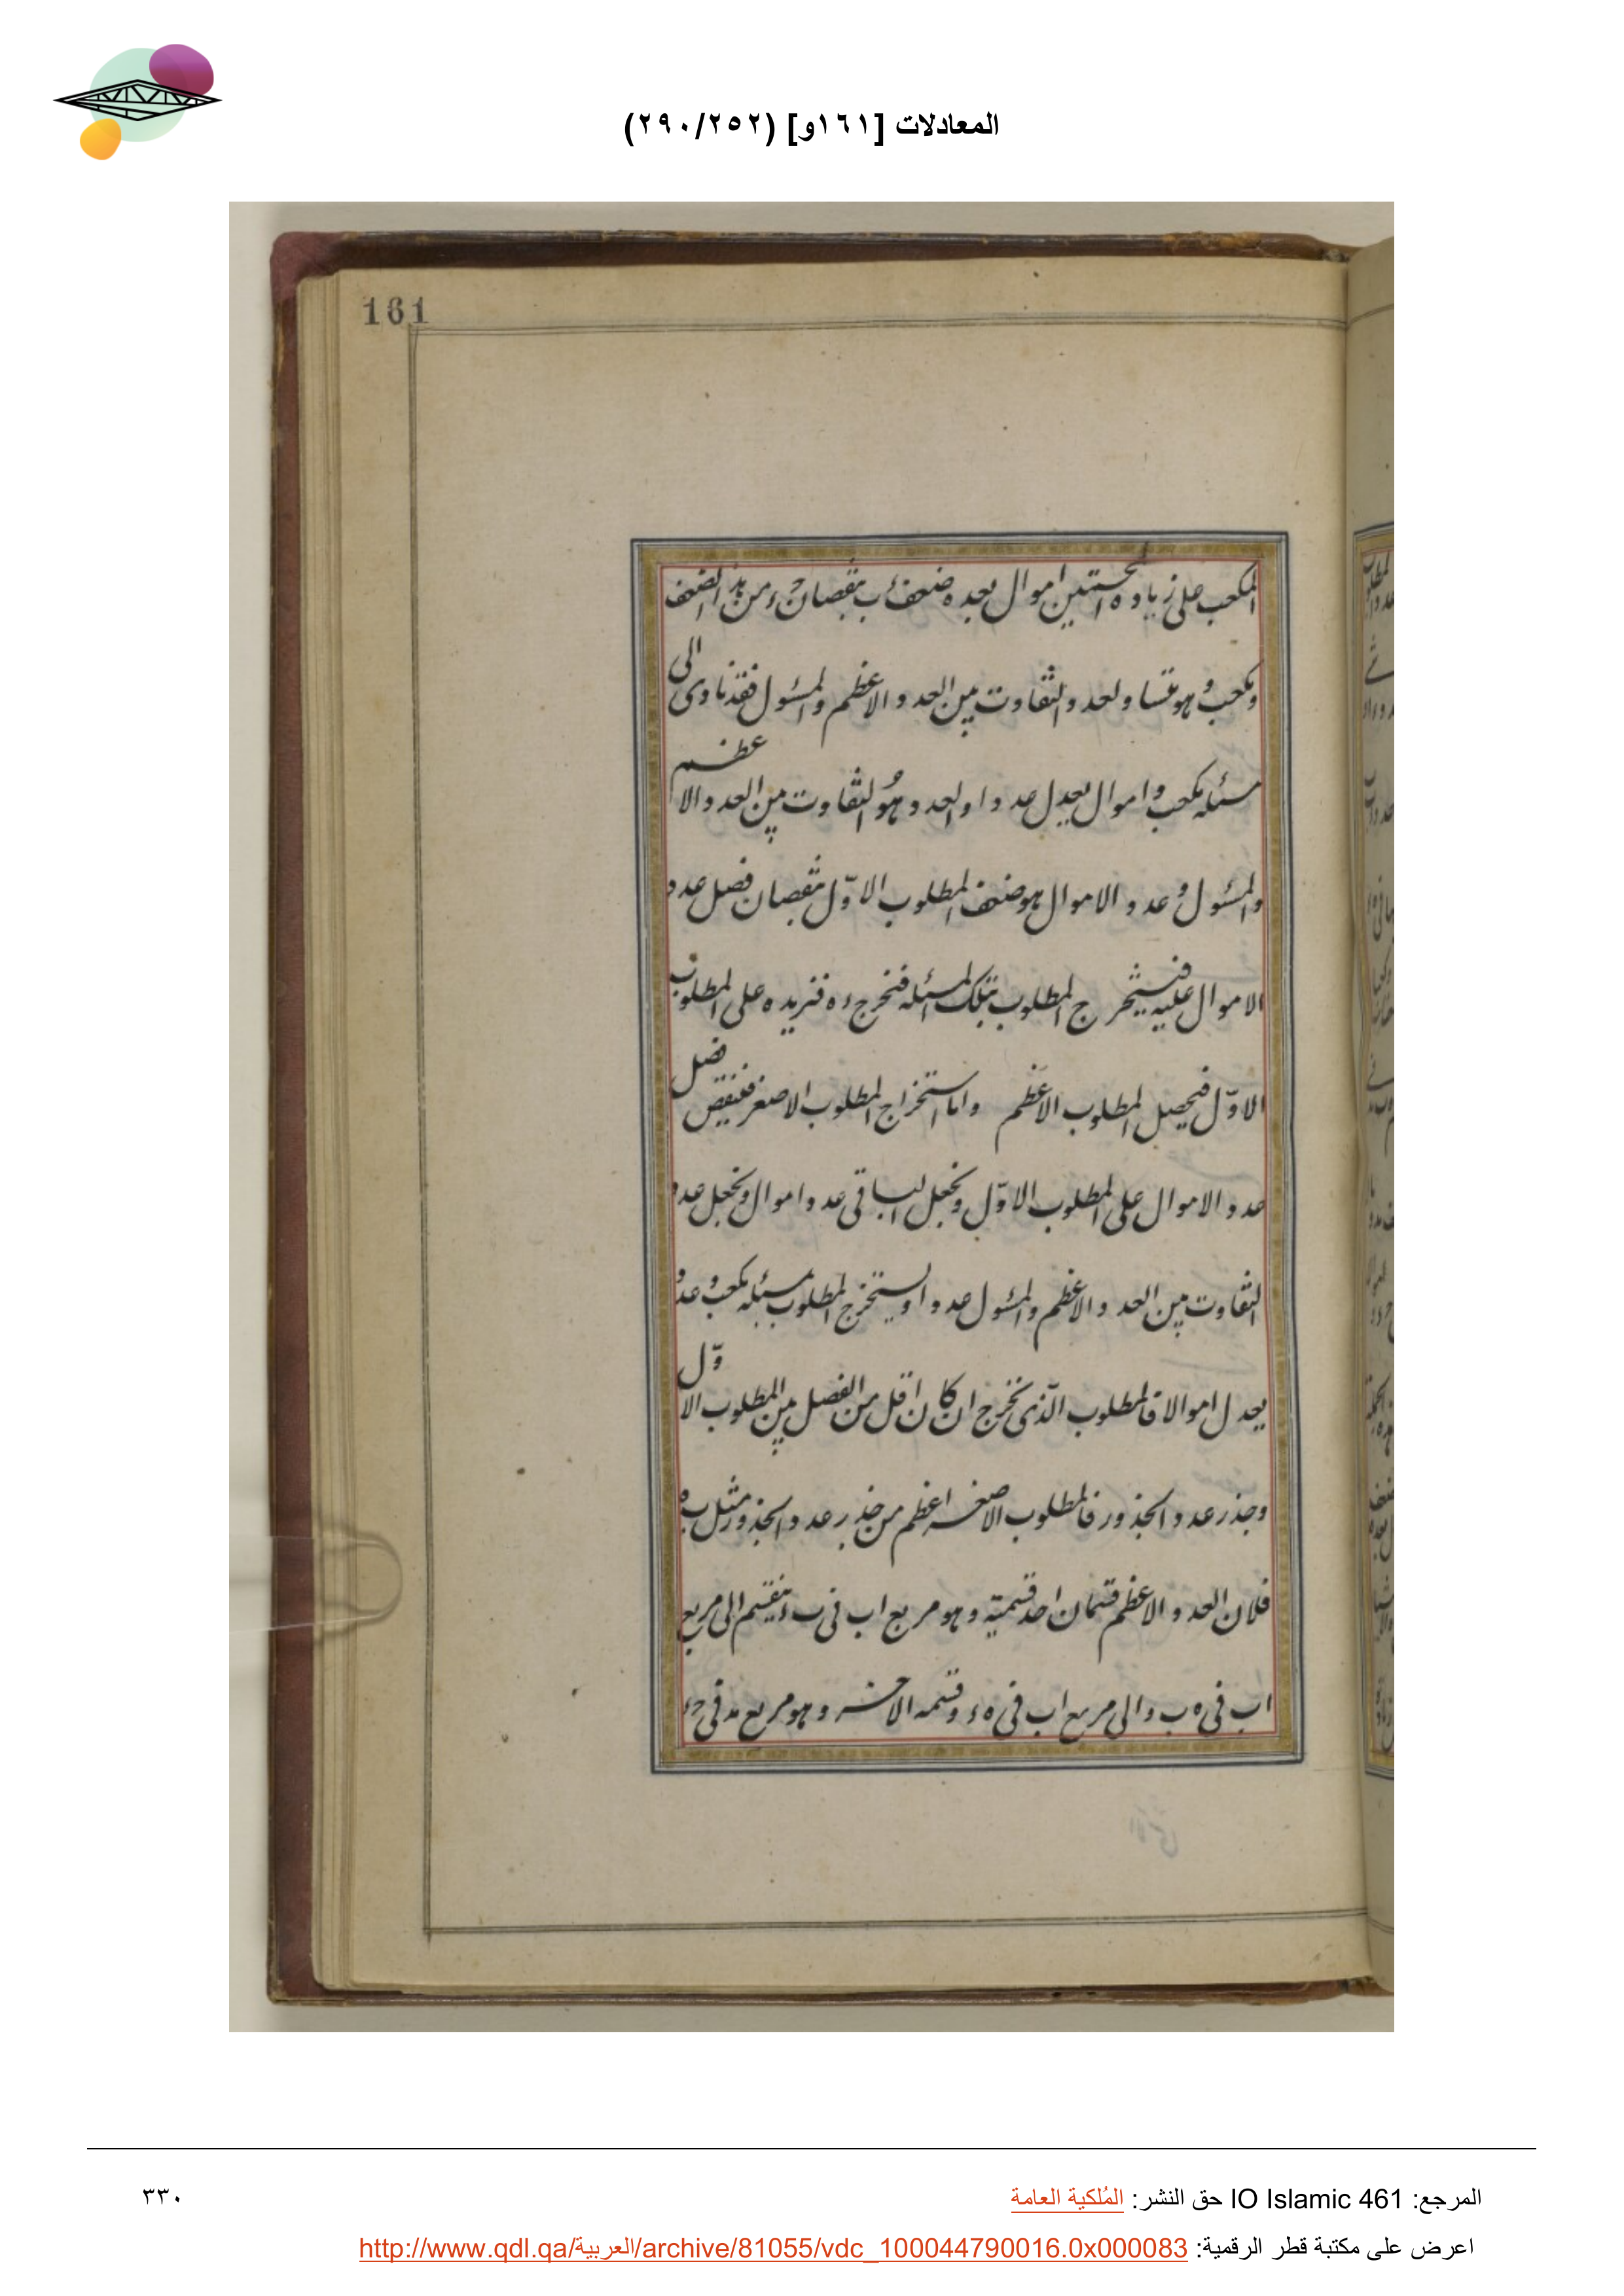 المعادلات [١٦١و] (٢٩٠/٢٥٢)
161
المكعب على زيادة امثلين اموال بعده ضعف ب بنقصان حء من هذا الضعف
ومكعب وهو مساو لعدد التفاوت بين العدد الاعظم والمسئول فقد تأدى الى
مسئله مكعب واموال يعدل عددا والعدد هو التفاوت بين العدد الاعظم
والمسئول وعدد الاموال هو ضعف المطلوب الاول بنقصان فضل عدد
الاموال عليه فنستخرج المطلوب بتلك المسئله فنخرج ءه فنزيده على المطلوب
الاول فيحصل المطلوب الاعظم واما استخراج المطلوب الاصغر فننقص فضل
عدد الاموال على المطلوب الاول ونجعل الباقى عدد اموال ونجعل عدد
التفاوت بين العدد الاعظم والمسئول عددا ونستخرج المطلوب بمسئله مكعب وعدد
يعدل اموالا فالمطلوب الذى يخرج ان كان اقل من الفصل بين المطلوب الاول
وجذر عدد الجذور فالمطلوب الاصغر اعظم من جذر عدد الجذور مثل ب ه
فلان العدد الاعظم قسمان احد قسميه وهو مربع اب فى ب ء ينقسم الى مربع
اب فى ه ب والى مربع اب فى ه ء وقسمه الاخر وهو مربع مد فى حء
المرجع: IO Islamic 461 حق النشر: المُلكية العامة
٣٣٠
اعرض على مكتبة قطر الرقمية: http://www.qdl.qa/العربية/archive/81055/vdc_100044790016.0x000083